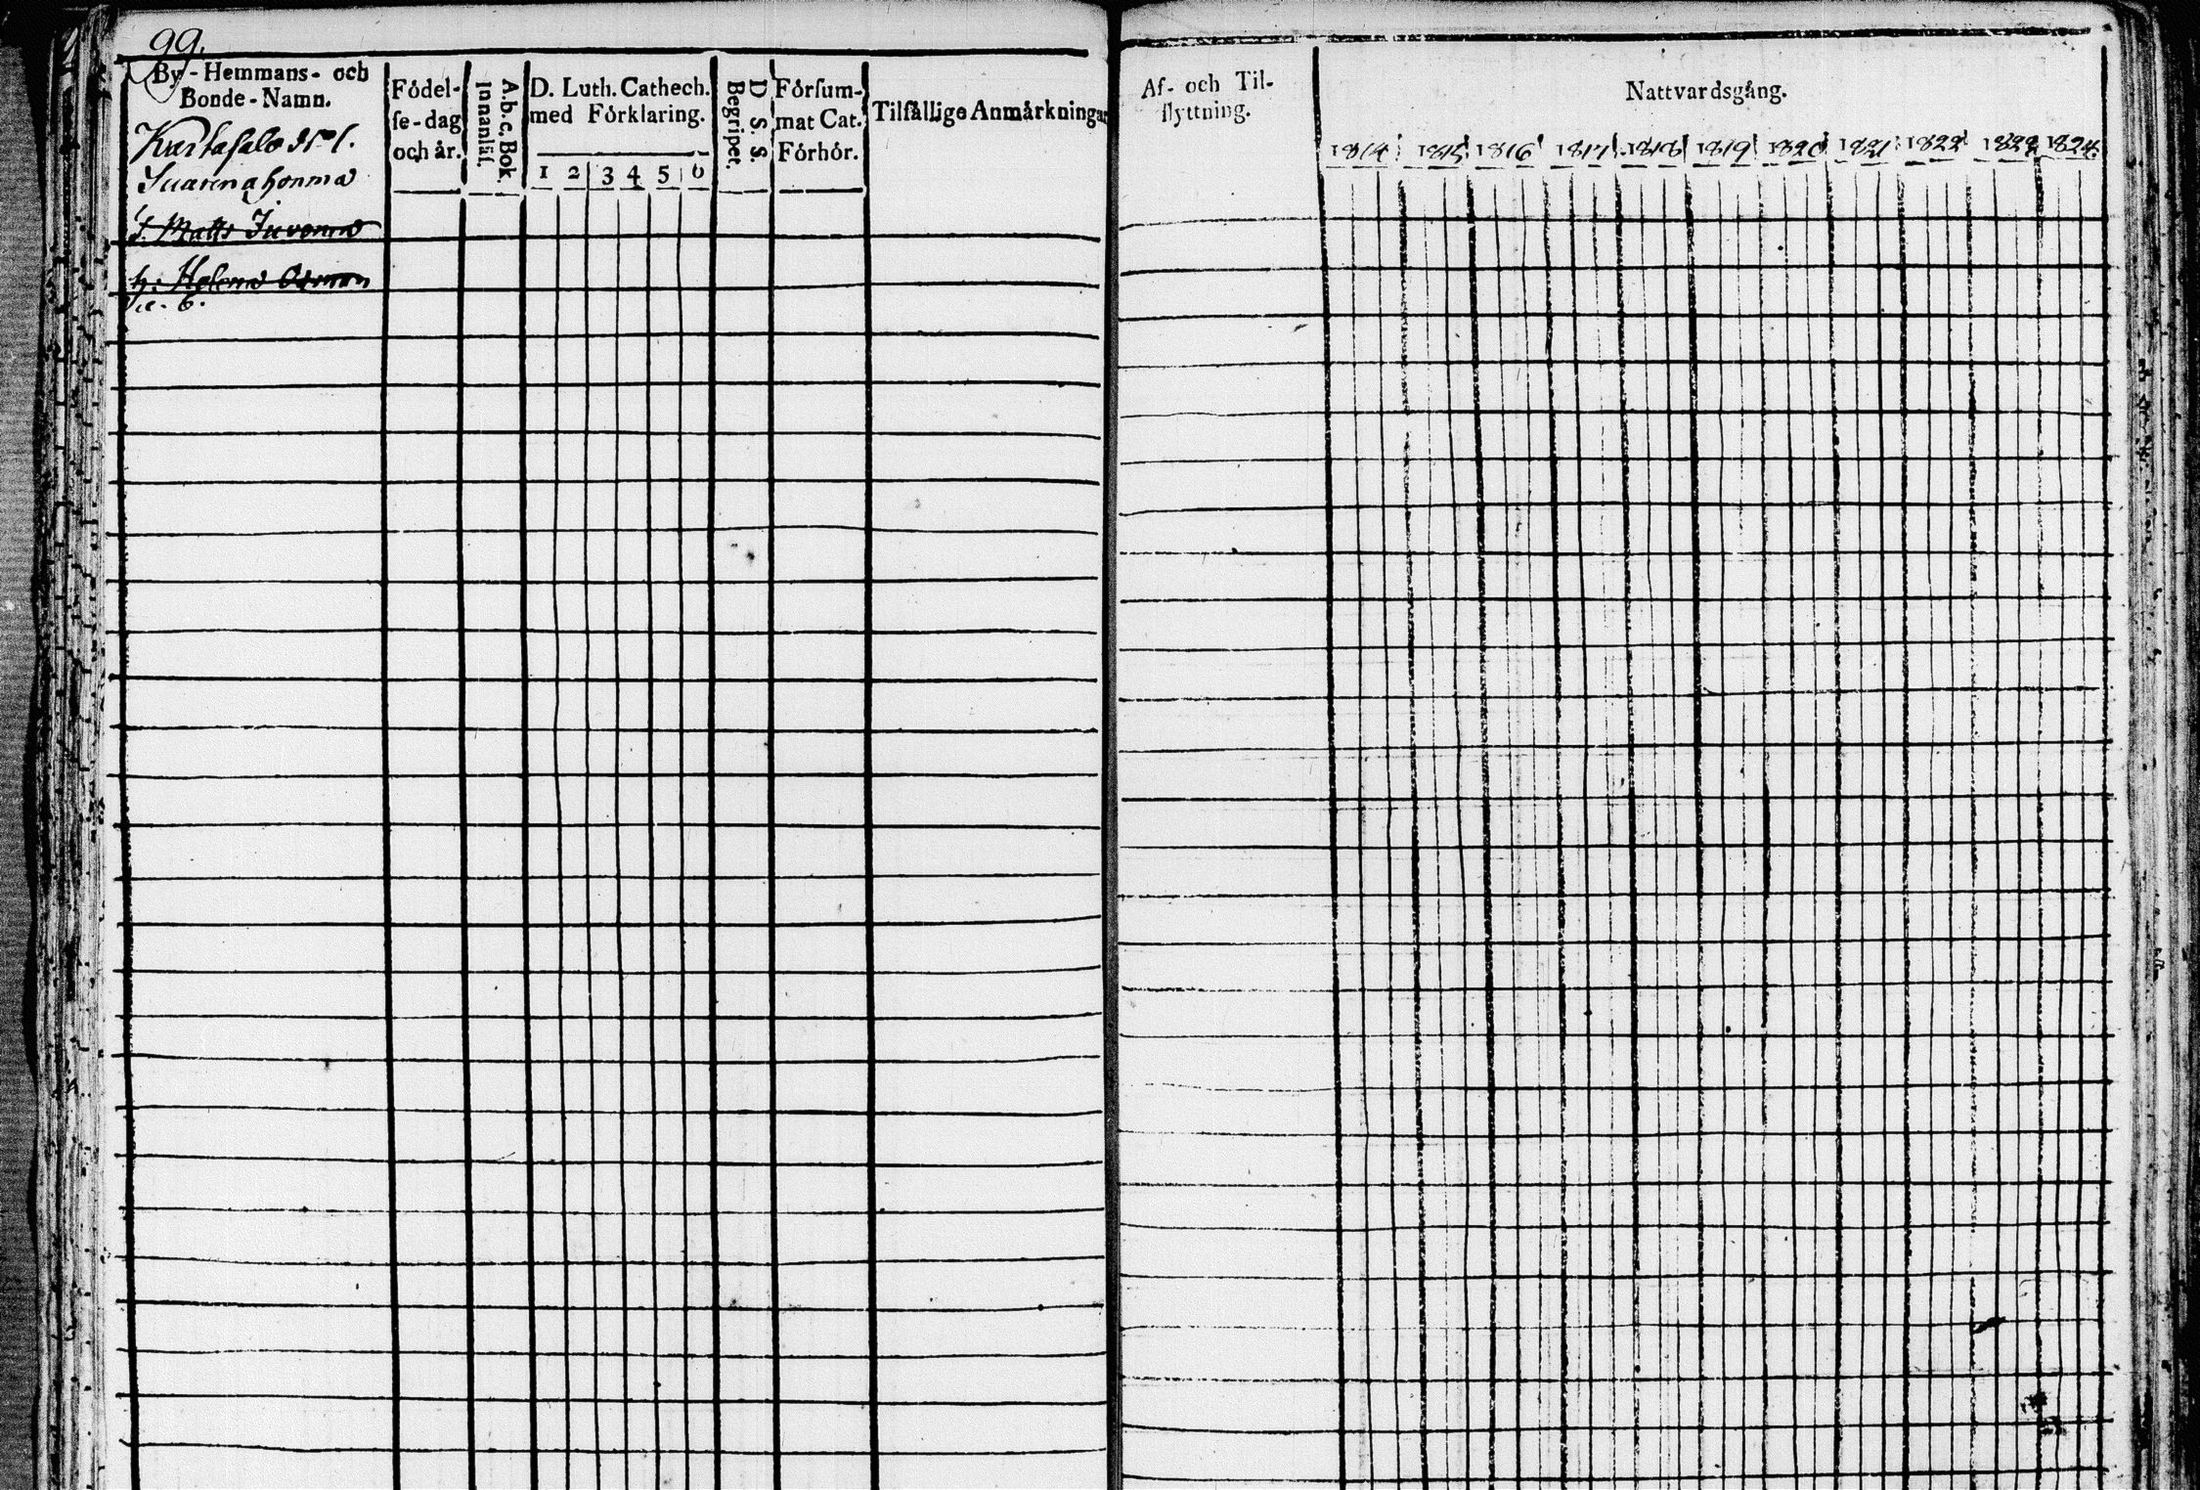 99.
By-Hemmans- och
Bonde-Namn.
Födel-
se-dag
och år.
A.b.c. Bok.
Innanläs.
D. Luth. Cathech.
med Förklaring.
1 2 3 4 5 6
D. S. S.
Begripet.
Försum-
mat Cat.
Förhör.
Tilfällige Anmärkningar
N:o 1.
Matts Juvonen
h. Helena
Af- och Til-
flyttning.
Nattvardsgång.
1814 1815 1816 1817 1818 1819 1820 1821 1822 1823 1824